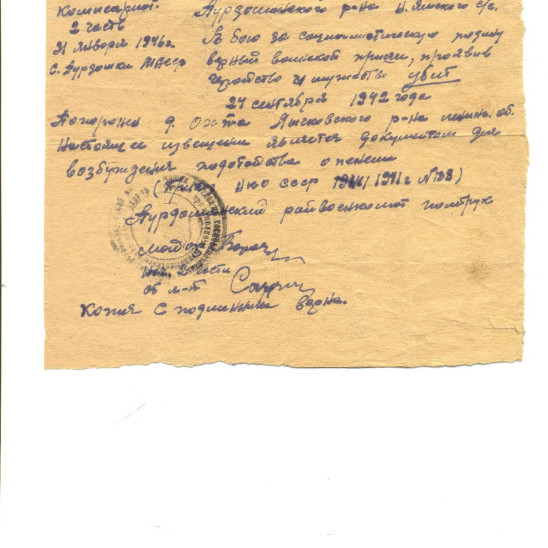 Комиссариат.
2 часть
31 января 1946г.
с. Аурдошки МАССР
Аурдошанского р-на
В бою за социалистическую родину
верный воинской присяге, проявив
геройство и мужество убит
24 сентября 1942 года
Похоронен д. Охта
р-на ленин. об.
Настоящее извещение является документом для
возбуждения ходотайства о пенсии
НКО СССР
Аурдошанский райвоенкомат
майор
нач. 2 части
об л-т
Копия с подлинным верна.